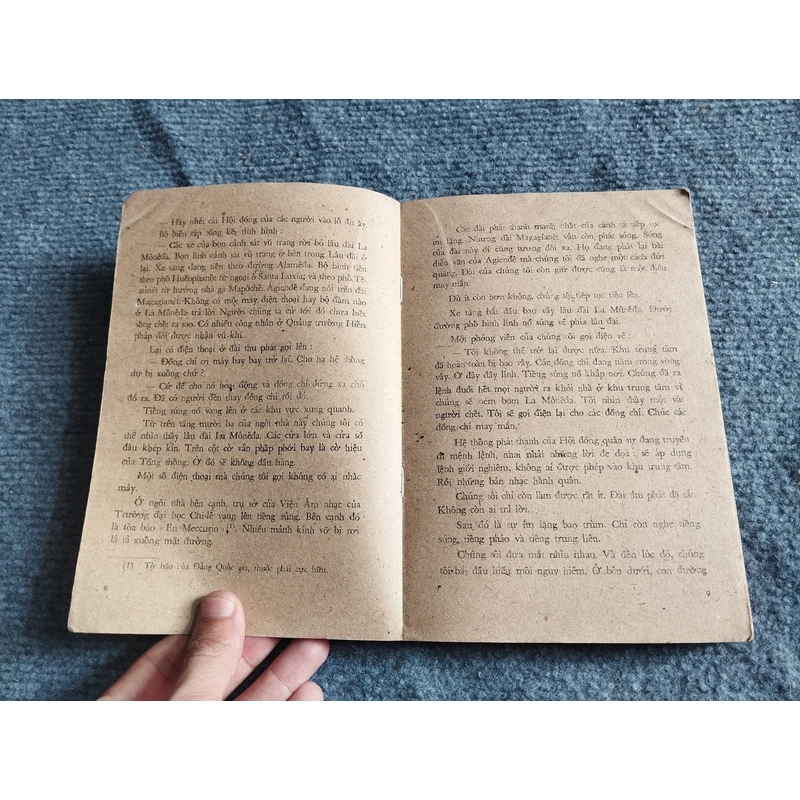 — Hãy nhét cái Hội đồng của các người vào lỗ đít ấy.
Bộ biên tập tổng kết tình hình :
— Các xe của bọn cảnh sát vũ trang rời bỏ lâu đài La
Mônêđa. Bọn lính cảnh sát vũ trang ở bên trong Lâu đài ở
lại. Xe tăng đang tiến theo đường Alamêđa. Bộ binh tiến
theo phố từ ngoại ô Santa Luxia; và theo phố
từ hướng nhà ga Mapôchê. Agiendê đang nói trên đài
Magagianét. Không có một máy điện thoại hay bộ đàm nào
ở La Mônêđa trả lời Người chúng ta cử tới đó chưa biết
sống chết ra sao. Có nhiều công nhân ở Quảng trường Hiến
pháp đòi được nhận vũ khí.
Lại có điện thoại ở đài thu phát gọi lên :
— Đồng chí ơi máy bay bay trở lại. Cho hạ hệ thống
dự bị xuống chứ ?
— Cứ để cho nó hoạt động và đồng chí đứng xa chỗ
đó ra. Đã có người đến thay đồng chí rồi đó.
Tiếng súng nổ vang lên ở các khu vực xung quanh.
Từ trên tầng mười ba của ngôi nhà này chúng tôi có
thể nhìn thấy lâu đài La Mônêda. Các cửa lớn và cửa sổ
đều khép kín. Trên cột cờ vẫn phấp phới bay lá cờ hiệu
của Tổng thống. Ở đó sẽ không đầu hàng.
Một số điện thoại mà chúng tôi gọi không có ai nhấc
máy.
Ở ngôi nhà bên cạnh, trụ sở của Viện Âm nhạc của
Trường đại học Chi-lê vang lên tiếng súng. Bên cạnh đó
là tòa báo « En Meccurio »(1). Nhiều mảnh kính vỡ bị rơi
lả tả xuống mặt đường.
(1) Tờ báo của Đảng Quốc gia, thuộc phái cực hữu.
8
Các đài phát thanh mạnh nhất của cánh tả tiếp tục
im lặng. Nhưng đài Magagianét vẫn còn phát sóng. Sóng
của đài này đi cũng tương đối xa. Họ đang phát lại bài
diễn văn của Agiendê mà chúng tôi đã nghe một cách đứt
quãng. Đài của chúng tôi còn giữ được cũng là một điều
may mắn.
Dù ít còn hơn không, chúng tôi tiếp tục tiến lên.
Xe tăng bắt đầu bao vây lâu đài La Mônêđa. Dưới
đường phố binh lính nổ súng về phía lâu đài.
Một phóng viên của chúng tôi gọi điện về :
— Tôi không thể trở lại được nữa. Khu trung tâm
đã hoàn toàn bị bao vây. Các đồng chí đang nằm trong vòng
vây. Ở đây đầy lính. Tiếng súng nổ khắp nơi. Chúng đã ra
lệnh đuổi hết mọi người ra khỏi nhà ở khu trung tâm vì
chúng sẽ ném bom La Mônêđa. Tôi nhìn thấy một vài
người chết. Tôi sẽ gọi điện lại cho các đồng chí. Chúc các
đồng chí may mắn.
Hệ thống phát thanh của Hội đồng quân sự đang truyền
đi mệnh lệnh, nhai nhải những lời đe dọa : sẽ áp dụng
lệnh giới nghiêm, không ai được phép vào khu trung tâm.
Rồi những bản nhạc hành quân.
Chúng tôi chỉ còn làm được rất ít. Đài thu phát đã tắt.
Không còn ai trả lời.
Sau đó là sự im lặng bao trùm. Chỉ còn nghe tiếng
súng, tiếng pháo và tiếng trung liên.
Chúng tôi đưa mắt nhìn nhau. Và đến lúc đó, chúng
tôi bắt đầu hiểu mối nguy hiểm. Ở bên dưới, con đường
9